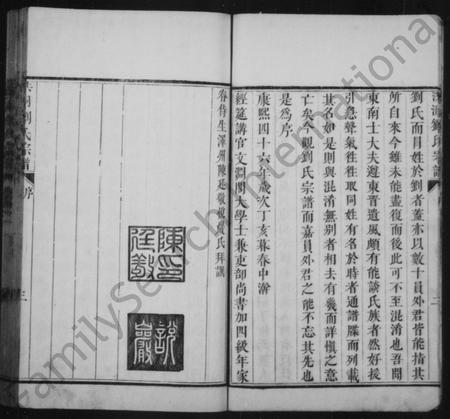 劉氏而冐姓於劉者蓋亦以數十員外君皆能指其
所自來今雖未能盡復而後此可不至混淆也吾聞
東南士大夫遵東晋遺風頗有能談氏族者然好援
引慿聲氣徃徃取同姓有名於時者通譜牒而列載
其名如是則與混淆無别者相去有幾而詳愼之意
亡矣今觀劉氏宗譜而嘉員外君之能不忘其先也
是爲序
康熙四十六年歲次丁亥暮春中澣
經筵講官文淵閣大學士兼吏部尚書加四級年家
眷侍生澤州陳廷敬頓首氏拜譔
陳廷敬印
說巖
劉氏宗譜
序
三
劉氏宗譜
二
FamilySearch International